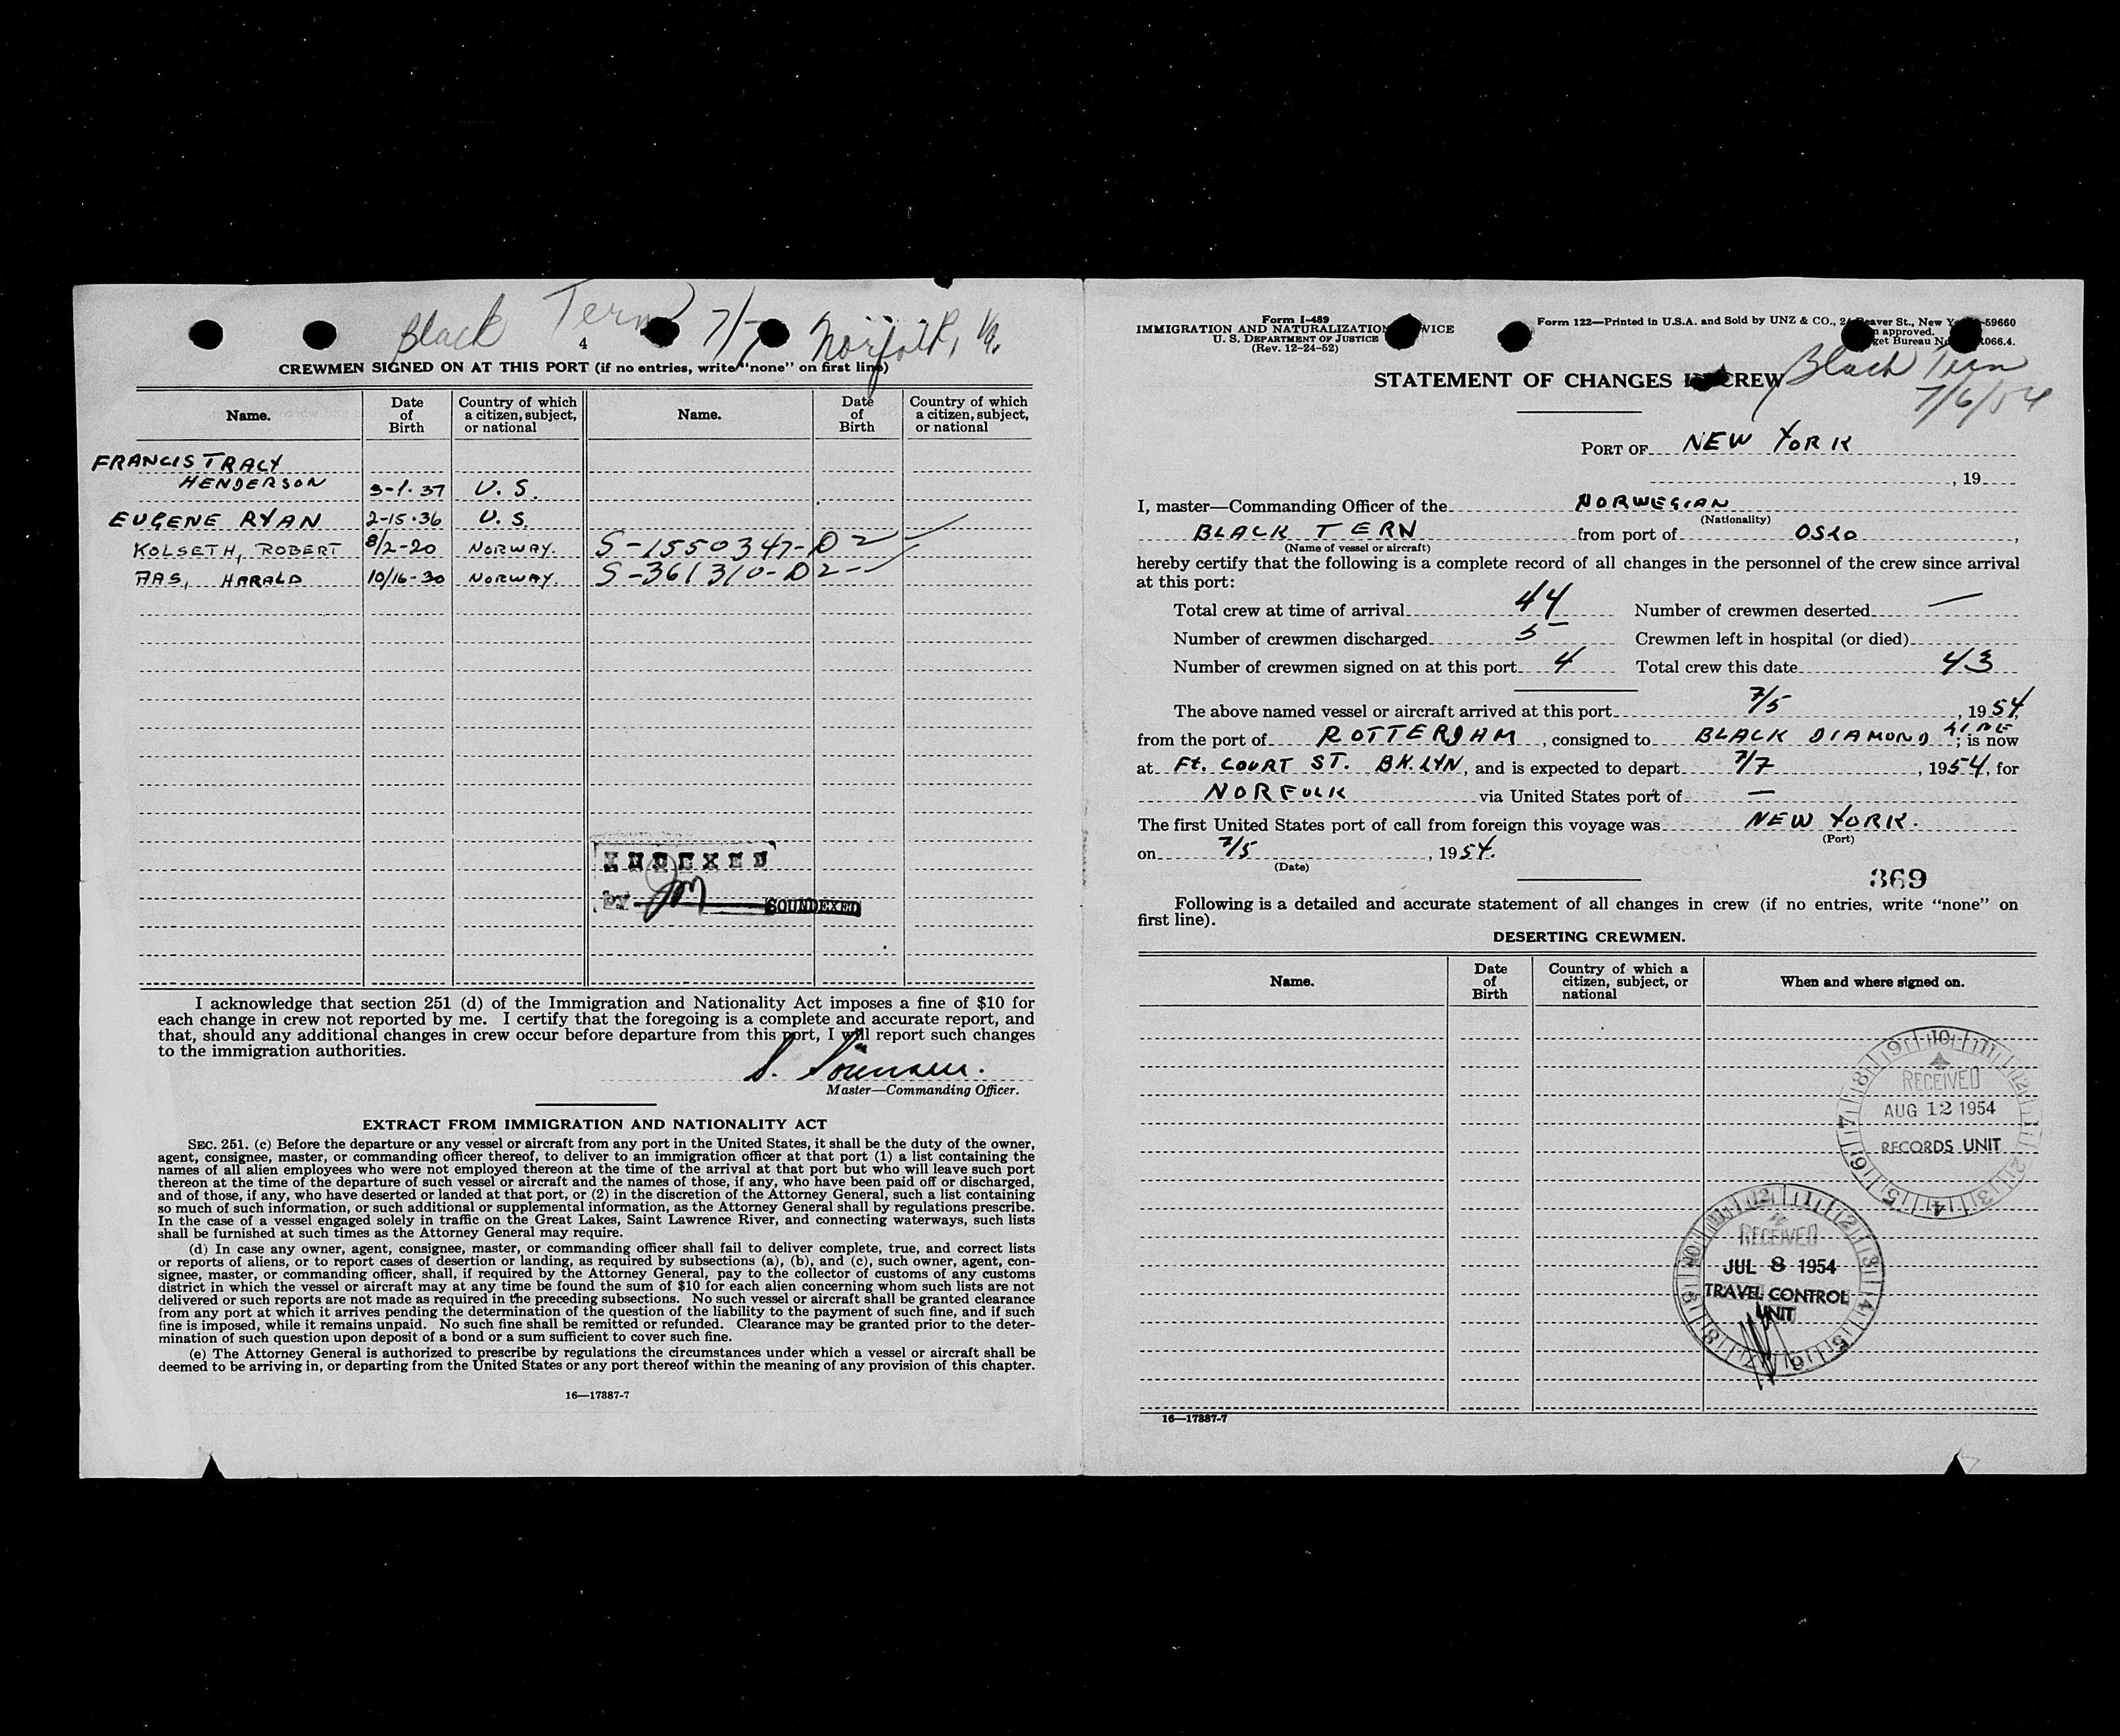 Black Tern 7/7 Norfolk, Va.
4
CREWMEN SIGNED ON AT THIS PORT (if no entries, write "none" on first line)
Name. Date of Birth Country of which a citizen, subject, or national Name. Date of Birth Country of which a citizen, subject, or national
FRANCIS TRACY
HENDERSON 3-1-37 U.S.
EUGENE RYAN 2-15-36 U.S.
KOLSETH, ROBERT 8/2-20 NORWAY. S-1550347-D2
AAS, HARALD 10/16-30 NORWAY. S-361310-D2
INDEXED
BY JM SOUNDEXED
I acknowledge that section 251 (d) of the Immigration and Nationality Act imposes a fine of $10 for
each change in crew not reported by me. I certify that the foregoing is a complete and accurate report, and
that, should any additional changes in crew occur before departure from this port, I will report such changes
to the immigration authorities.
Master—Commanding Officer.
EXTRACT FROM IMMIGRATION AND NATIONALITY ACT
SEC. 251. (c) Before the departure or any vessel or aircraft from any port in the United States, it shall be the duty of the owner,
agent, consignee, master, or commanding officer thereof, to deliver to an immigration officer at that port (1) a list containing the
names of all alien employees who were not employed thereon at the time of the arrival at that port but who will leave such port
thereon at the time of the departure of such vessel or aircraft and the names of those, if any, who have been paid off or discharged,
and of those, if any, who have deserted or landed at that port, or (2) in the discretion of the Attorney General, such a list containing
so much of such information, or such additional or supplemental information, as the Attorney General shall by regulations prescribe.
In the case of a vessel engaged solely in traffic on the Great Lakes, Saint Lawrence River, and connecting waterways, such lists
shall be furnished at such times as the Attorney General may require.
(d) In case any owner, agent, consignee, master, or commanding officer shall fail to deliver complete, true, and correct lists
or reports of aliens, or to report cases of desertion or landing, as required by subsections (a), (b), and (c), such owner, agent, con-
signee, master, or commanding officer, shall, if required by the Attorney General, pay to the collector of customs of any customs
district in which the vessel or aircraft may at any time be found the sum of $10 for each alien concerning whom such lists are not
delivered or such reports are not made as required in the preceding subsections. No such vessel or aircraft shall be granted clearance
from any port at which it arrives pending the determination of the question of the liability to the payment of such fine, and if such
fine is imposed, while it remains unpaid. No such fine shall be remitted or refunded. Clearance may be granted prior to the deter-
mination of such question upon deposit of a bond or a sum sufficient to cover such fine.
(e) The Attorney General is authorized to prescribe by regulations the circumstances under which a vessel or aircraft shall be
deemed to be arriving in, or departing from the United States or any port thereof within the meaning of any provision of this chapter.
16—17887-7
Form I-489
IMMIGRATION AND NATURALIZATION
U. S. DEPARTMENT OF JUSTICE
(Rev. 12-24-52)
Form 122—Printed in U.S.A. and Sold by UNZ & CO., St., New -59660
approved.
Bureau
STATEMENT OF CHANGES IN CREW
Black Tern
7/6/54
PORT OF NEW YORK
, 19
I, master—Commanding Officer of the NORWEGIAN
(Nationality)
BLACK TERN from port of OSLO ,
(Name of vessel or aircraft)
hereby certify that the following is a complete record of all changes in the personnel of the crew since arrival
at this port:
Total crew at time of arrival 44 Number of crewmen deserted —
Number of crewmen discharged 5 Crewmen left in hospital (or died)
Number of crewmen signed on at this port 4 Total crew this date 43
The above named vessel or aircraft arrived at this port 7/5 , 1954,
from the port of ROTTERDAM , consigned to BLACK DIAMOND LINE ; is now
at Ft. COURT ST. BK.LYN, and is expected to depart 7/7 , 1954, for
NORFOLK via United States port of —
The first United States port of call from foreign this voyage was NEW YORK.
(Port)
on 7/5 , 1954.
(Date)
369
Following is a detailed and accurate statement of all changes in crew (if no entries, write "none" on
first line).
DESERTING CREWMEN.
Name. Date of Birth Country of which a citizen, subject, or national When and where signed on.
RECEIVED
AUG 12 1954
RECORDS UNIT
RECEIVED
JUL 8 1954
TRAVEL CONTROL
UNIT
16—17887-7